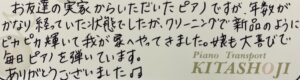 お友達の実家からいただいたピアノですが、年数が
かなり経っていた状態でしたが、クリーニングで新品のように
ピカピカ輝いて我が家へやってきました。娘も大喜びで
毎日ピアノを弾いています。
ありがとうございました。
Piano Transport
KITASHOJI